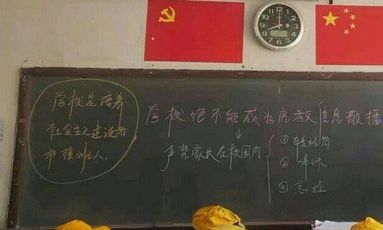 学校是培养
社会主义建设者
和接班人。
学校绝不能成为宗教信息散播
严禁家长在校园内
①转经筒
②
③念经